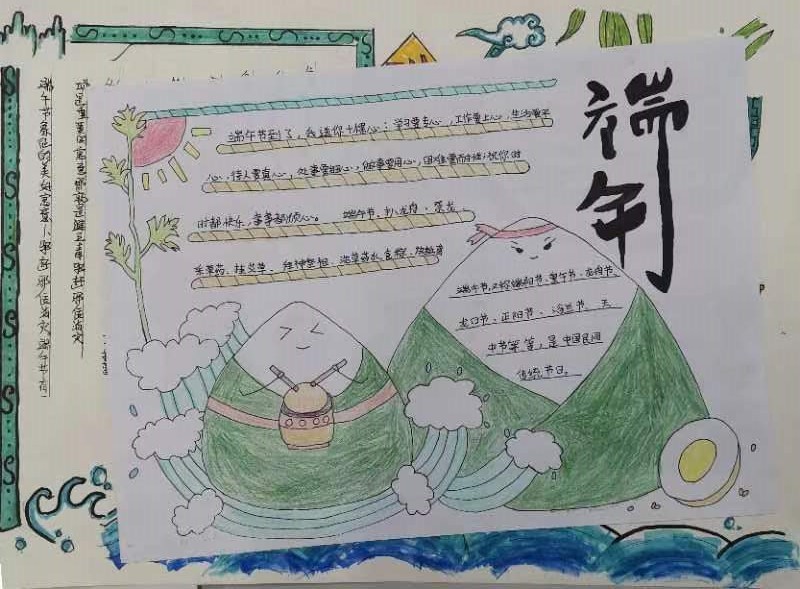 端午
端午节到了，我送你十棵心：学习要专心，工作要上心，生活要平
心，待人要真心，处事要细心，做事要用心，困难要有信心祝你时
时都快乐，事事都顺心。 端午节、扒龙舟、祭龙、
采草药、挂艾草、拜神祭祖、洗草药水、食粽、放纸鸢
端午节，又称端阳节、重午节、龙舟节
龙日节、正阳节、浴兰节、天
中节等等，是中国民间
传统节日。
端午节象征的美好寓意